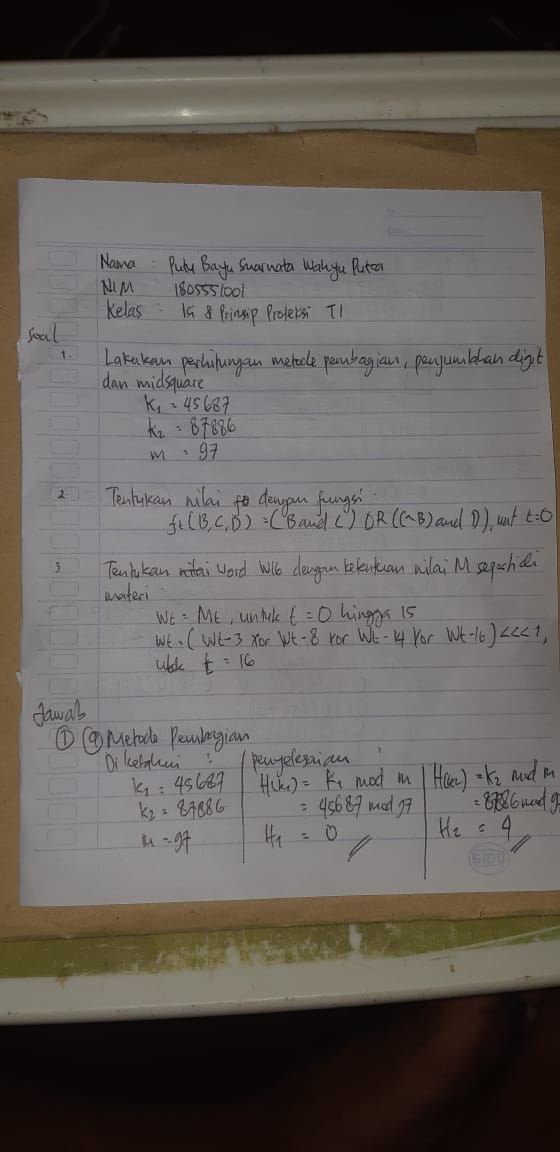 Nama : Putu Bayu Suarnata Wahyu Putra
NIM : 1805551001
Kelas : Isi & Prinsip Proteksi TI
Soal
1. Lakukan perhitungan metode pembagian, penjumlahan digit
dan midsquare
K₁ = 45687
K₂ = 87886
m = 97
2 Tentukan nilai dengan fungsi
ft (B, C, D) = (B and C) OR ((~B) and D), unt t=0
3 Tentukan nilai word W16 dengan ketentuan nilai M seperti di
materi
Wt = Mt, untuk t = 0 hingga 15
Wt = (Wt-3 xor Wt-8 xor Wt-14 xor Wt-16) <<< 1,
utk t = 16
Jawab
① (a) Metode Pembagian
Diketahui : penyelesaian :
K₁ = 45687 H(K₁) = K₁ mod m H(K₂) = K₂ mod m
K₂ = 87886 = 45687 mod 97 = 87886 mod 9
m = 97 H₁ = 0 H₂ = 4
SIDU